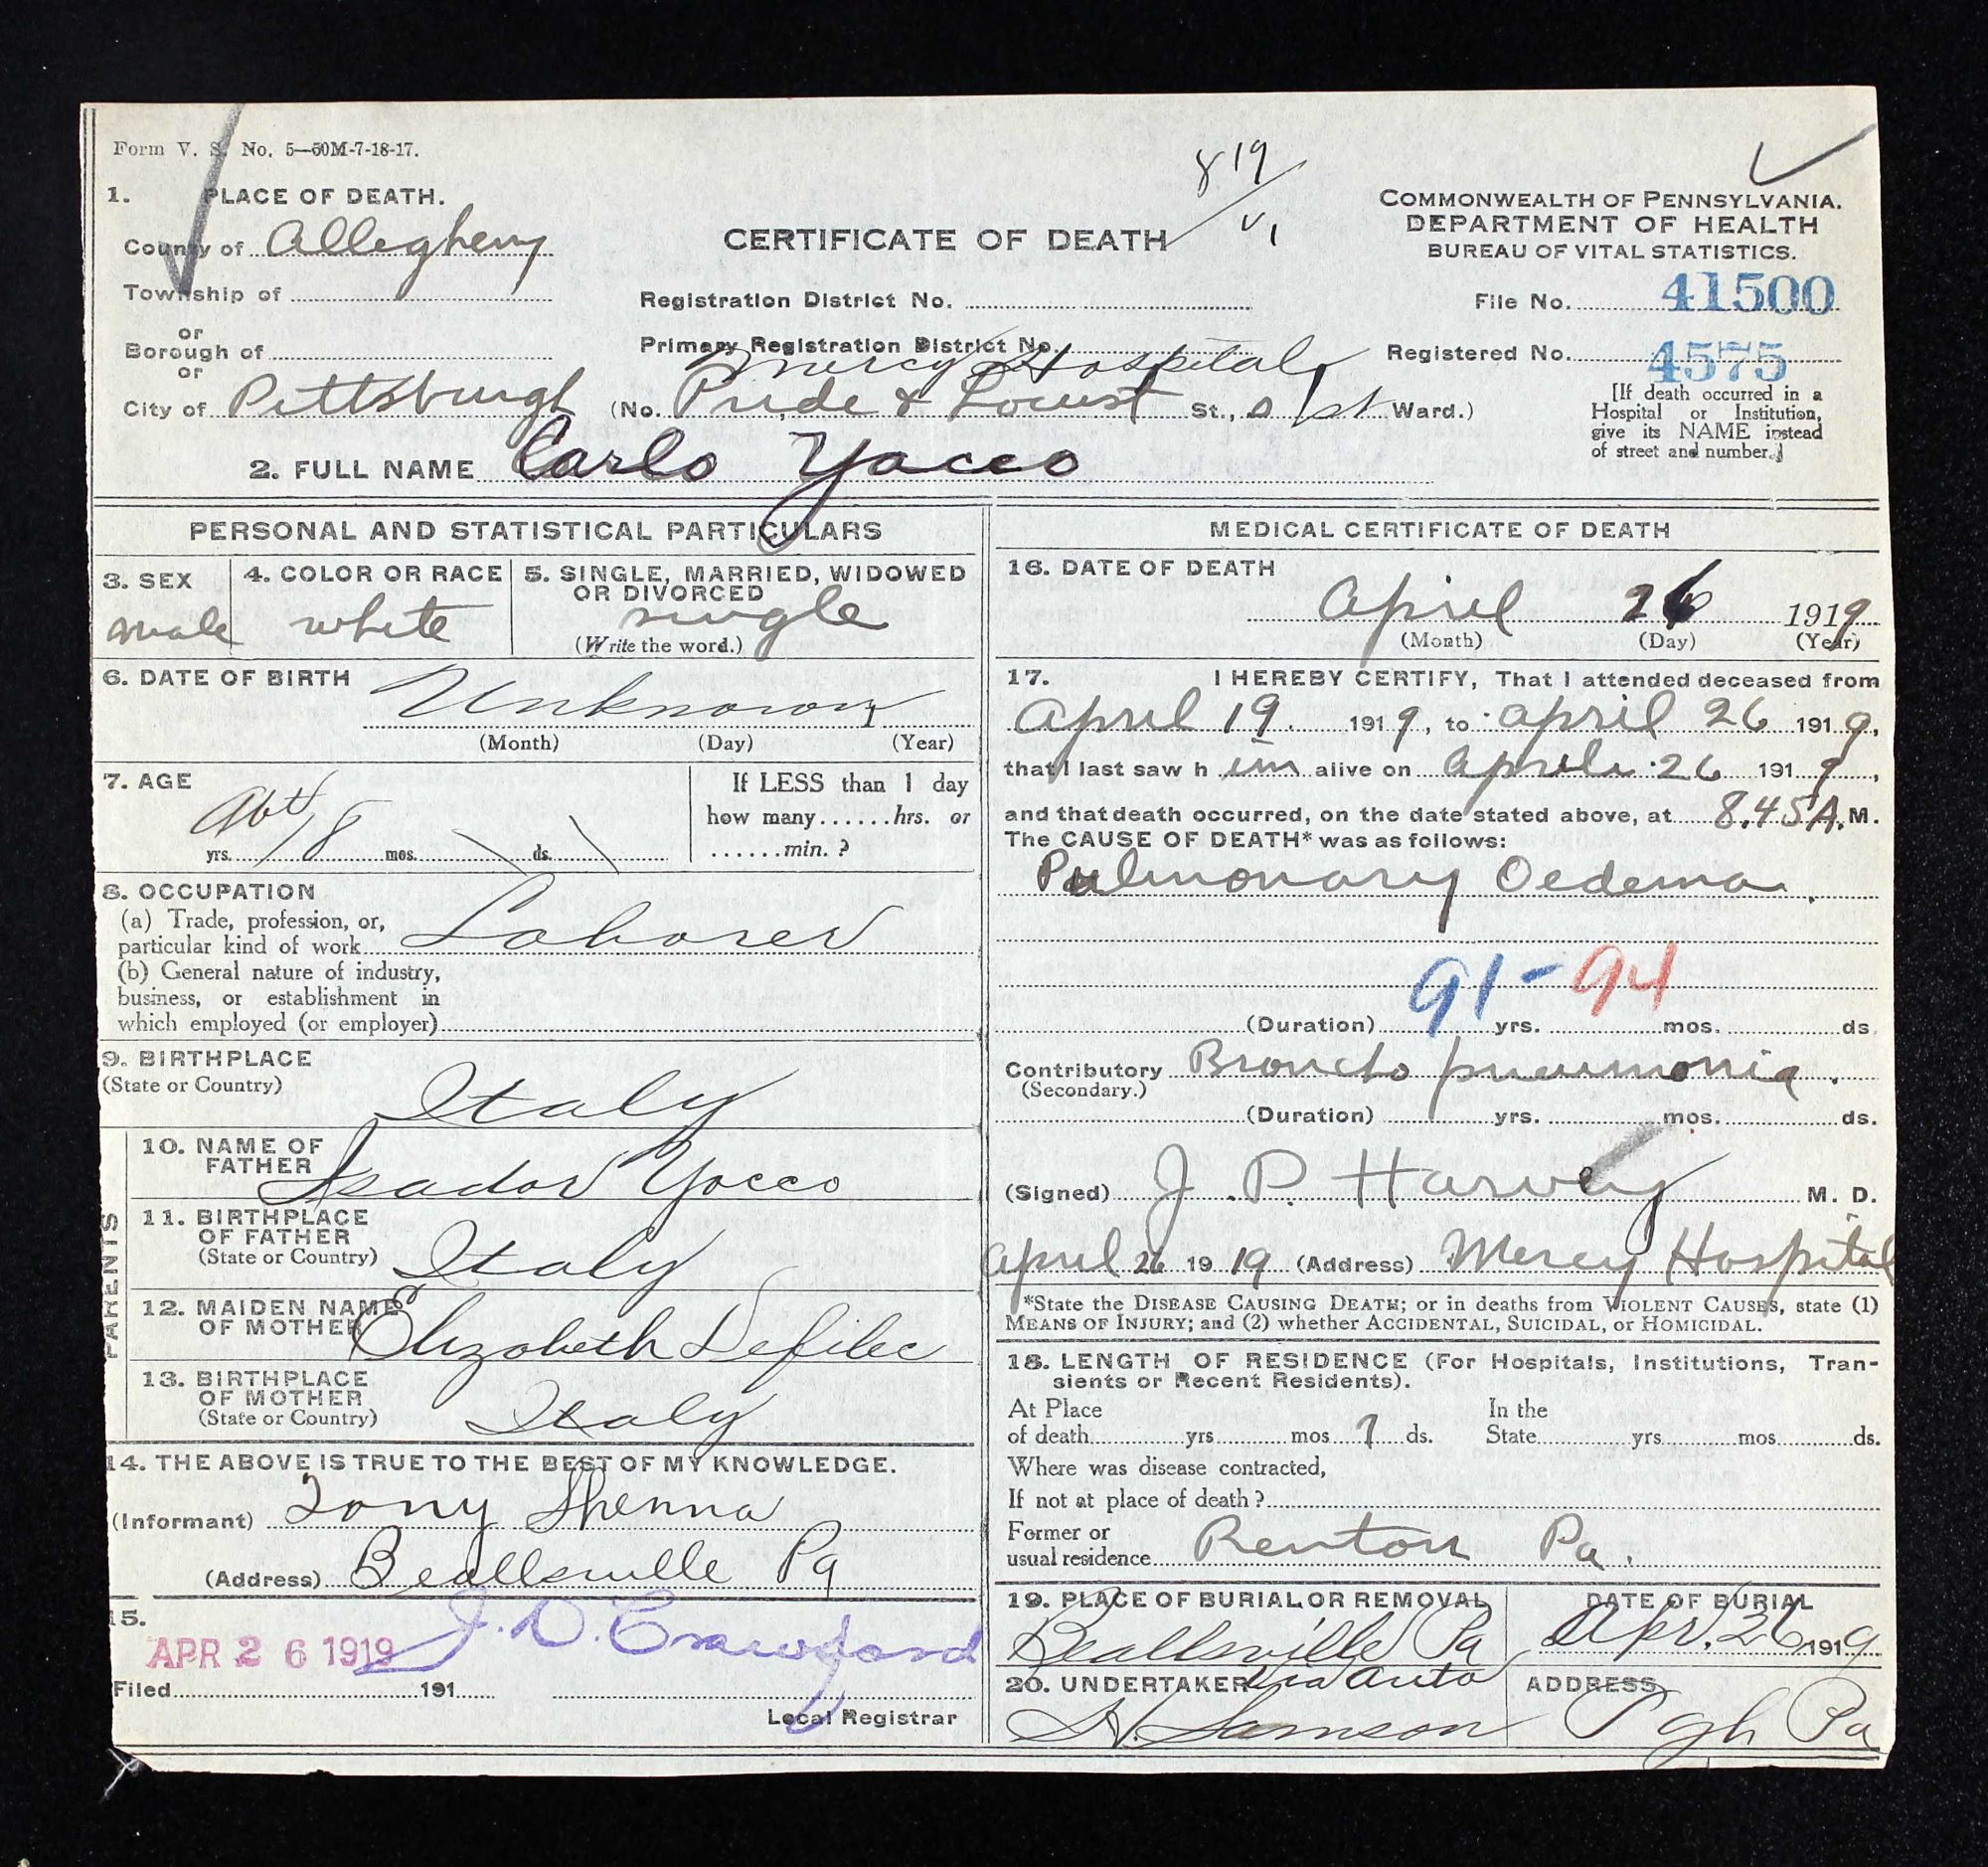 Form V. S. No. 5—50M-7-18-17.
819
V1
1. PLACE OF DEATH.
County of Allegheny
Township of
or
Borough of
or
City of Pittsburgh
CERTIFICATE OF DEATH
Registration District No.
Primary Registration District No.
Mercy Hospital
(No. Pride & Locust St., 1st Ward.)
COMMONWEALTH OF PENNSYLVANIA.
DEPARTMENT OF HEALTH
BUREAU OF VITAL STATISTICS.
File No. 41500
Registered No. 4575
[If death occurred in a
Hospital or Institution,
give its NAME instead
of street and number.]
2. FULL NAME Carlo Yacco
PERSONAL AND STATISTICAL PARTICULARS
3. SEX
male
4. COLOR OR RACE
white
5. SINGLE, MARRIED, WIDOWED
OR DIVORCED
single
(Write the word.)
6. DATE OF BIRTH
Unknown
(Month) (Day) (Year)
7. AGE
Abt 18
yrs. mos. ds.
If LESS than 1 day
how many......hrs. or
......min. ?
8. OCCUPATION
(a) Trade, profession, or,
particular kind of work Laborer
(b) General nature of industry,
business, or establishment in
which employed (or employer)
9. BIRTHPLACE
(State or Country)
Italy
PARENTS
10. NAME OF
FATHER
Isador Yocco
11. BIRTHPLACE
OF FATHER
(State or Country)
Italy
12. MAIDEN NAME
OF MOTHER
Elizabeth Defilec
13. BIRTHPLACE
OF MOTHER
(State or Country)
Italy
14. THE ABOVE IS TRUE TO THE BEST OF MY KNOWLEDGE.
(Informant) Tony Shenna
(Address) Beallsville Pa
15.
APR 26 1919 J. D. Crawford
Filed 191
Local Registrar
MEDICAL CERTIFICATE OF DEATH
16. DATE OF DEATH
April 26 1919
(Month) (Day) (Year)
17. I HEREBY CERTIFY, That I attended deceased from
April 19. 1919, to April 26 1919,
that I last saw him alive on April 26 1919,
and that death occurred, on the date stated above, at 8.45 A.M.
The CAUSE OF DEATH* was as follows:
Pulmonary Oedema
91-94
(Duration) yrs. mos. ds.
Contributory Broncho pneumonia.
(Secondary.)
(Duration) yrs. mos. ds.
(Signed) J. P. Harvey M. D.
April 26 1919 (Address) Mercy Hospital
*State the DISEASE CAUSING DEATH; or in deaths from VIOLENT CAUSES, state (1)
MEANS OF INJURY; and (2) whether ACCIDENTAL, SUICIDAL, or HOMICIDAL.
18. LENGTH OF RESIDENCE (For Hospitals, Institutions, Tran-
sients or Recent Residents).
At Place
of death yrs mos 7 ds.
In the
State yrs mos ds.
Where was disease contracted,
If not at place of death ?
Former or
usual residence Renton Pa.
19. PLACE OF BURIAL OR REMOVAL
Beallsville Pa
Via Auto
DATE OF BURIAL
Apr. 26 1919
20. UNDERTAKER
H. Samson
ADDRESS
Pgh Pa